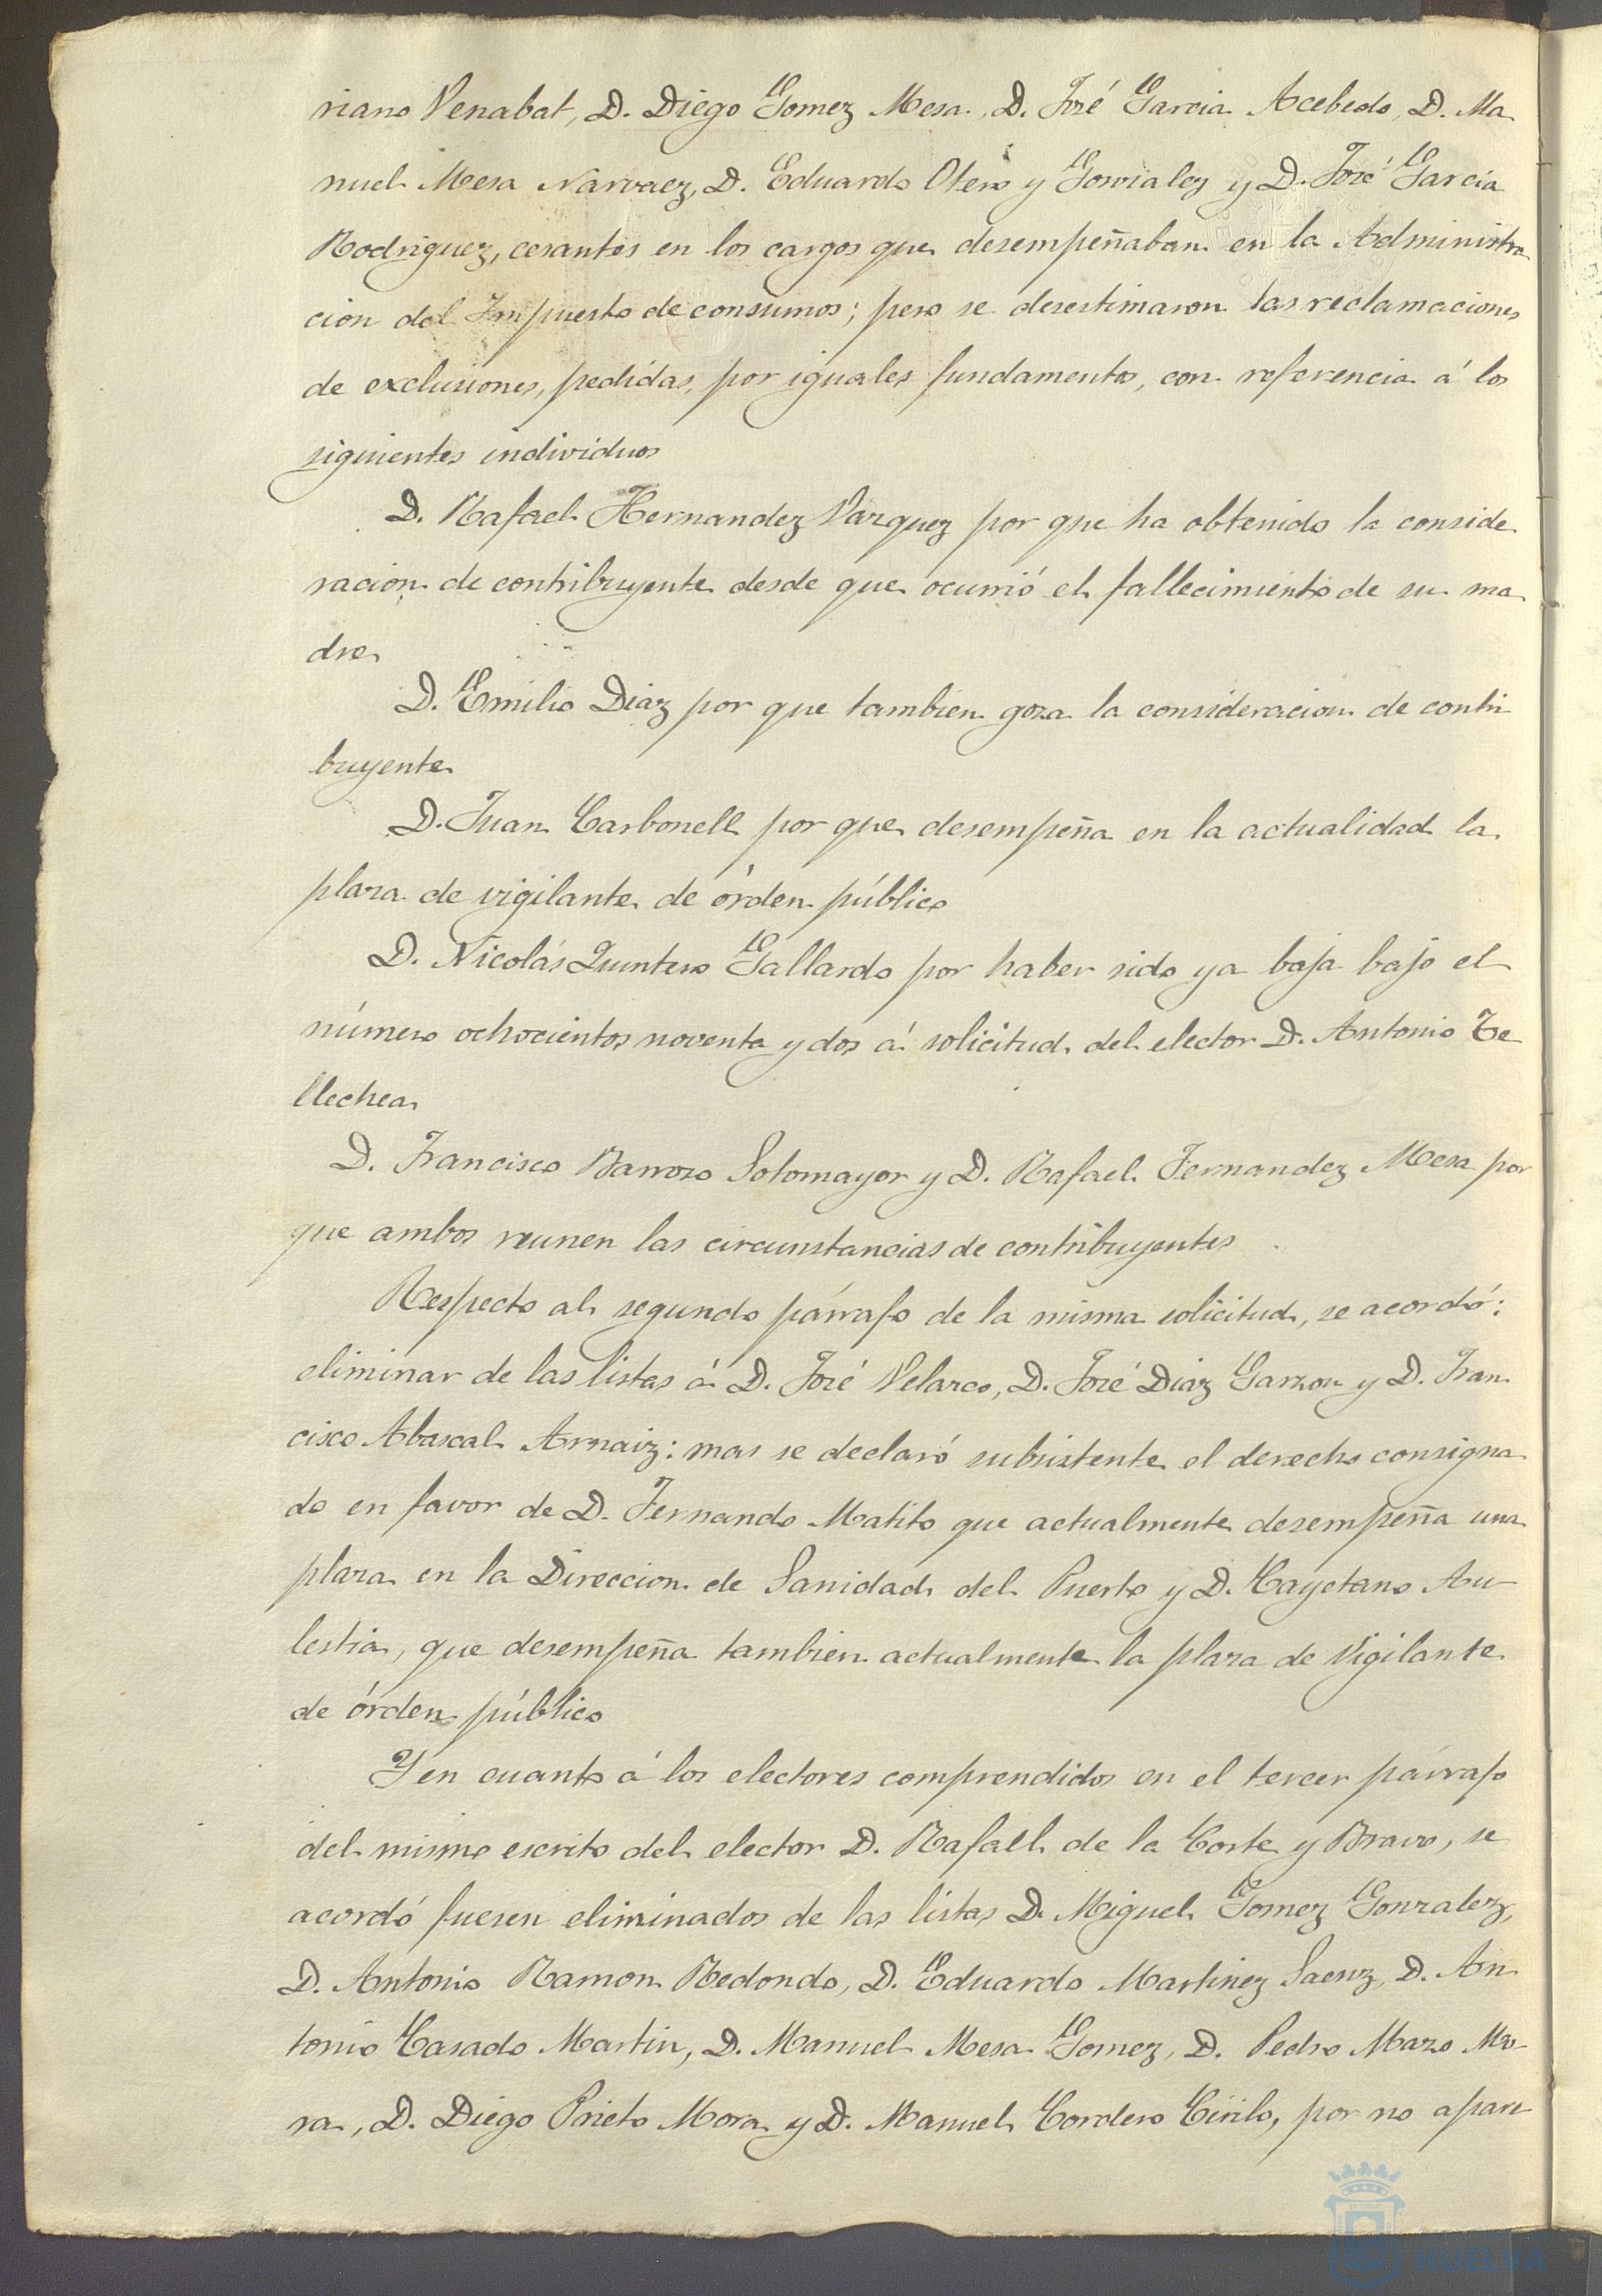 riano Venabat, D. Diego Gomez Mesa, D. José Garcia Acebedo, D. Ma
nuel Mesa Narvaez, D. Eduardo Otero y Gonzalez y D. José Garcia
Rodriguez, cesantes en los cargos que desempeñaban en la Administra
cion del Impuesto de consumos; pero se desestimaron las reclamaciones
de exclusiones, pedidas, por iguales fundamentos, con referencia á los
siguientes individuos
D. Rafael Hernandez Vazquez por que ha obtenido la conside
racion de contribuyente desde que ocurrió el fallecimiento de su ma
dre
D. Emilio Diaz por que tambien goza la consideracion de contri
buyente
D. Juan Carbonell por que desempeña en la actualidad la
plaza de vigilante de órden público
D. Nicolás Quintero Gallardo por haber sido ya baja bajo el
número ochocientos noventa y dos á solicitud del elector D. Antonio Te
llechea
D. Francisco Barroso Sotomayor y D. Rafael Fernandez Mesa por
que ambos reunen las circunstancias de contribuyentes
Respecto al segundo párrafo de la misma solicitud, se acordó:
eliminar de las listas á D. José Velarco, D. José Diaz Garzon y D. Fran
cisco Abascal Arnaiz: mas se declaró subsistente el derecho consigna
do en favor de D. Fernando Matito que actualmente desempeña una
plaza en la Direccion de Sanidad del Puerto y D. Cayetano Au-
lestia, que desempeña tambien actualmente la plaza de Vigilante
de órden público
Y en cuanto á los electores comprendidos en el tercer párrafo
del mismo escrito del elector D. Rafaell de la Corte y Bravo, se
acordó fuesen eliminados de las listas D. Miguel Gomez Gonzalez,
D. Antonio Ramon Redondo, D. Eduardo Martinez Saenz, D. An
tonio Casado Martin, D. Manuel Mesa Gomez, D. Pedro Mazo Mo-
ra, D. Diego Prieto Mora y D. Manuel Cordero Cirilo, por no apare
HUELVA